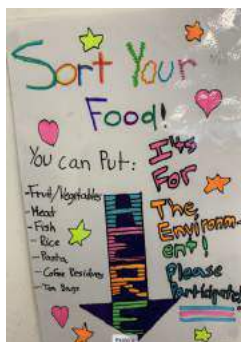 Sort Your
Food!
You can Put:
-Fruit/Vegetables
-Meat
-Fish
-Rice
-Pasta
-Coffee Residues
-Tea Bags
HERE
It's
For
The
Environm-
ent!
Please
Participate!